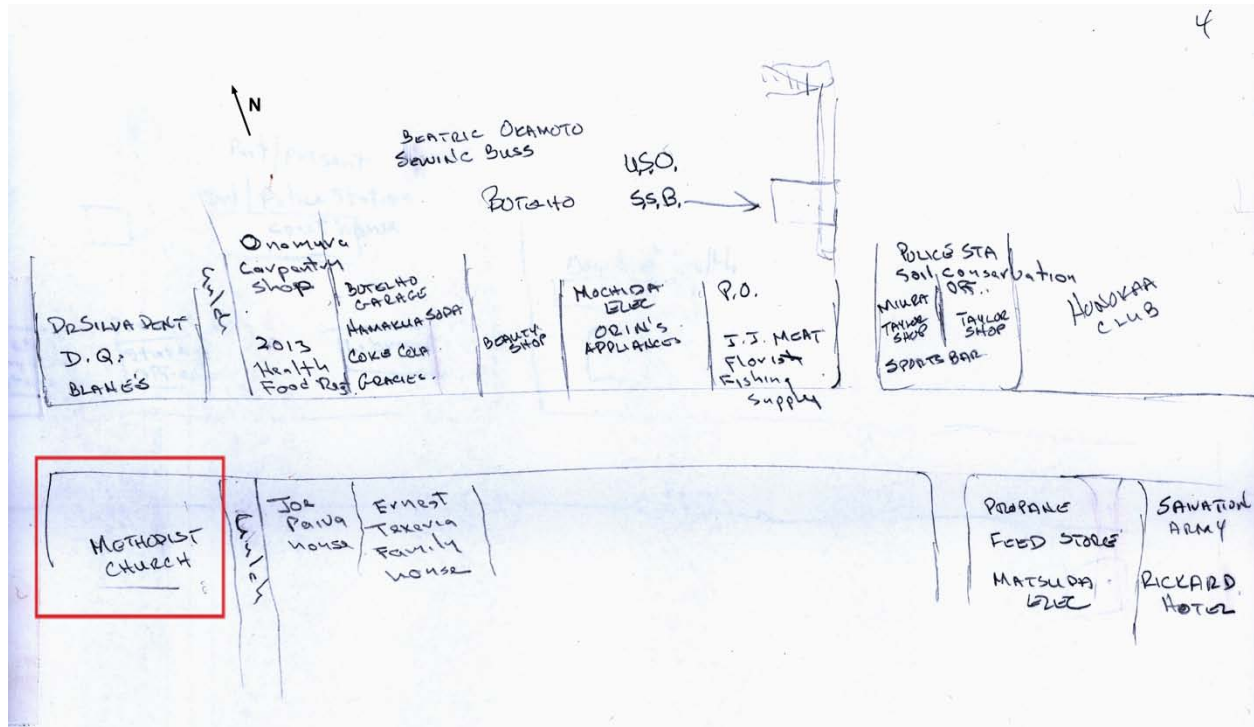 4
N
BEATRIC OKAMOTO
SEWING BUSS
U.S.O.
BOTELHO
S.S.B.
DR SILVA DENT
D.Q.
BLANE'S
Onomura
Carpentry
Shop
2013
Health
Food Res.
BOTELHO
GARAGE
HAMAKUA SODA
COKE COLA
GRACIES.
BEAUTY
SHOP
MOCHIDA
ELEC
ORIN'S
APPLIANCES
P.O.
J.J. MEAT
Florist
Fishing
Supply
POLICE STA
Soil Conservation
OFF..
MIURA
TAYLOR
SHOP
TAYLOR
SHOP
SPORTS BAR
HONOKAA
CLUB
METHODIST
CHURCH
Joe
Paiva
house
Ernest
Family
house
PROPANE
FEED STORE
MATSUDA
ELEC
SALVATION
ARMY
RICKARD
HOTEL